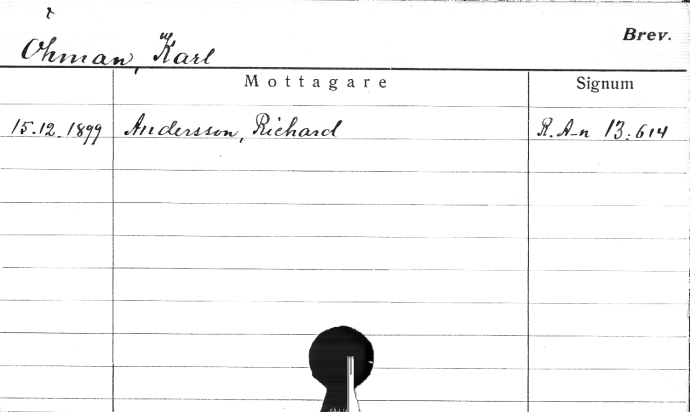 Brev.
Öhman, Karl
Mottagare Signum
15.12.1899 Andersson, Richard R.A-n 13.614